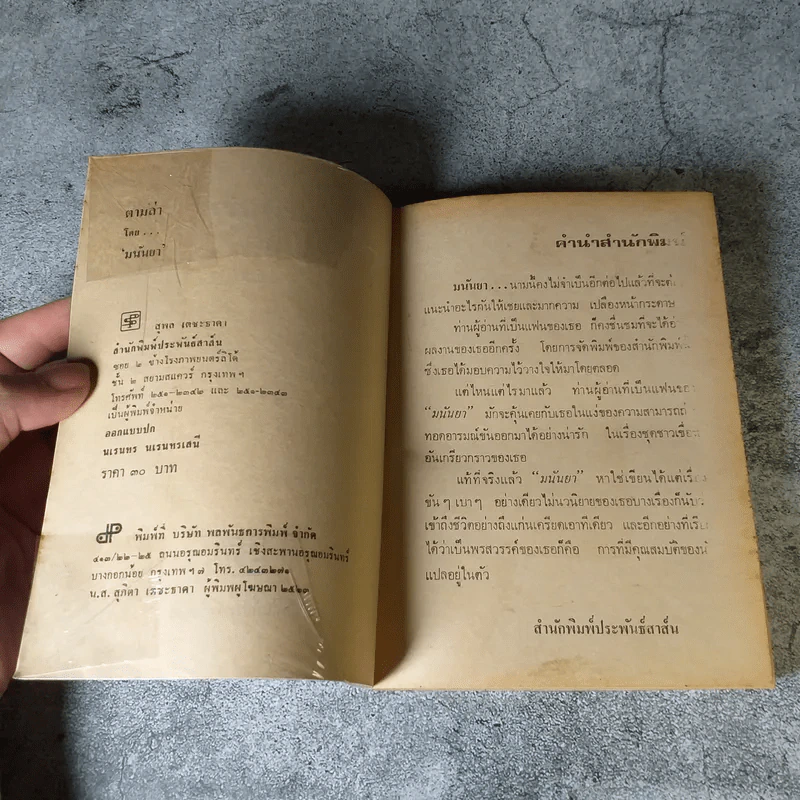 ตามล่า
โดย...
'มนันยา'
สุพล เตชะธาดา
สำนักพิมพ์ประพันธ์สาส์น
ซอย ๒ ข้างโรงภาพยนตร์ลิโด้
ชั้น ๒ สยามสแควร์ กรุงเทพฯ
โทรศัพท์ ๒๕๑-๒๓๔๒ และ ๒๕๑-๒๓๔๓
เป็นผู้พิมพ์จำหน่าย
ออกแบบปก
นเรนทร นเรนทรเสนี
ราคา ๓๐ บาท
พิมพ์ที่ บริษัท พลพันธ์การพิมพ์ จำกัด
๔๑๓/๒๒-๒๕ ถนนอรุณอมรินทร์ เชิงสะพานอรุณอมรินทร์
บางกอกน้อย กรุงเทพฯ ๗ โทร. ๔๒๔๓๒๗๑
น.ส. สุภิตา เตชะธาดา ผู้พิมพ์ผู้โฆษณา ๒๕๒๓
คำนำสำนักพิมพ์
มนันยา...นามนี้คงไม่จำเป็นอีกต่อไปแล้วที่จะต้
แนะนำอะไรกันให้เชยและมากความ เปลืองหน้ากระดาษ
ท่านผู้อ่านที่เป็นแฟนของเธอ ก็คงชื่นชมที่จะได้อ่
ผลงานของเธออีกครั้ง โดยการจัดพิมพ์ของสำนักพิมพ์
ซึ่งเธอได้มอบความไว้วางใจให้มาโดยตลอด
แต่ไหนแต่ไรมาแล้ว ท่านผู้อ่านที่เป็นแฟนของ
"มนันยา" มักจะคุ้นเคยกับเธอในแง่ของความสามารถ
ทอดอารมณ์ขันออกมาได้อย่างน่ารัก ในเรื่องชุดชาวเขื่อน
อันเกรียวกราวของเธอ
แท้ที่จริงแล้ว "มนันยา" หาใช่เขียนได้แต่เรื่อง
ขันๆ เบาๆ อย่างเดียวไม่นวนิยายของเธอบางเรื่องก็นับว
เข้าถึงชีวิตอย่างถึงแก่นเครียดเอาทีเดียว และอีกอย่างที่เรีย
ได้ว่าเป็นพรสวรรค์ของเธอก็คือ การที่มีคุณสมบัติของนั
แปลอยู่ในตัว
สำนักพิมพ์ประพันธ์สาส์น